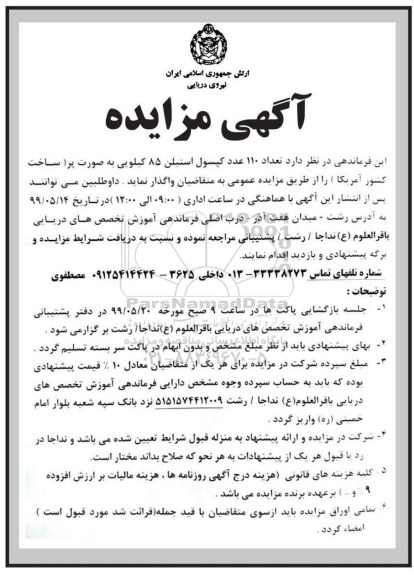 ارتش جمهوری اسلامی ایران
نیروی دریایی
آگهی مزایده
این فرماندهی در نظر دارد تعداد ۱۱۰ عدد کپسول استیلن ۸۵ کیلویی به صورت پر( ساخت
کشور آمریکا ) را از طریق مزایده عمومی به متقاضیان واگذار نماید . داوطلبین می توانند
پس از انتشار این آگهی با هماهنگی در ساعت اداری ( ۰۹:۰۰ الی ۱۲:۰۰ )در تاریخ ۹۹/۰۵/۱۴
به آدرس رشت - میدان هفت آذر - درب اصلی فرماندهی آموزش تخصص های دریایی
باقرالعلوم (ع) نداجا / رشت / پشتیبانی مراجعه نموده و نسبت به دریافت شرایط مزایده و
برگه پیشنهادی و بازدید اقدام نمایند.
شماره تلفهای تماس ۳۳۳۳۸۲۷۳-۰۱۳ داخلی ۳۶۲۵ - ۰۹۱۲۵۴۱۴۴۲۴ مصطفوی
توضیحات :
۱- جلسه بازگشایی پاکت ها در ساعت ۹ صبح مورخه ۹۹/۰۵/۲۰ در دفتر پشتیبانی
فرماندهی آموزش تخصص های دریایی باقرالعلوم (ع)نداجا/ رشت بر گزارمی شود .
۲- بهای پیشنهادی باید از نظر مبلغ مشخص و بدون ابهام در پاکت سر بسته تسلیم گردد .
۳- مبلغ سپرده شرکت در مزایده برای هر یک از متقاضیان معادل ۱۰ ٪ قیمت پیشنهادی
بوده که باید به حساب سپرده وجوه مشخص دارایی فرماندهی آموزش تخصص های
دریایی باقرالعلوم(ع) نداجا / رشت ۵۱۵۱۵۷۴۴۱۲۰۰۹ نزد بانک سپه شعبه بلوار امام
خمینی (ره) واریز گردد .
۴- شرکت در مزایده و ارائه پیشنهاد به منزله قبول شرایط تعیین شده می باشد و نداجا در
رد یا قبول هر یک از پیشنهادات به هر نحو که صلاح بداند مختار است.
۵- کلیه هزینه های قانونی (هزینه درج آگهی روزنامه ها ، هزینه مالیات بر ارزش افزوده
۹٪ و .. ) برعهده برنده مزایده می باشد .
۶- تمامی اوراق مزایده باید ازسوی متقاضیان با قید جمله(قرائت شد مورد قبول است )
امضاء گردد .
ParsNamadData